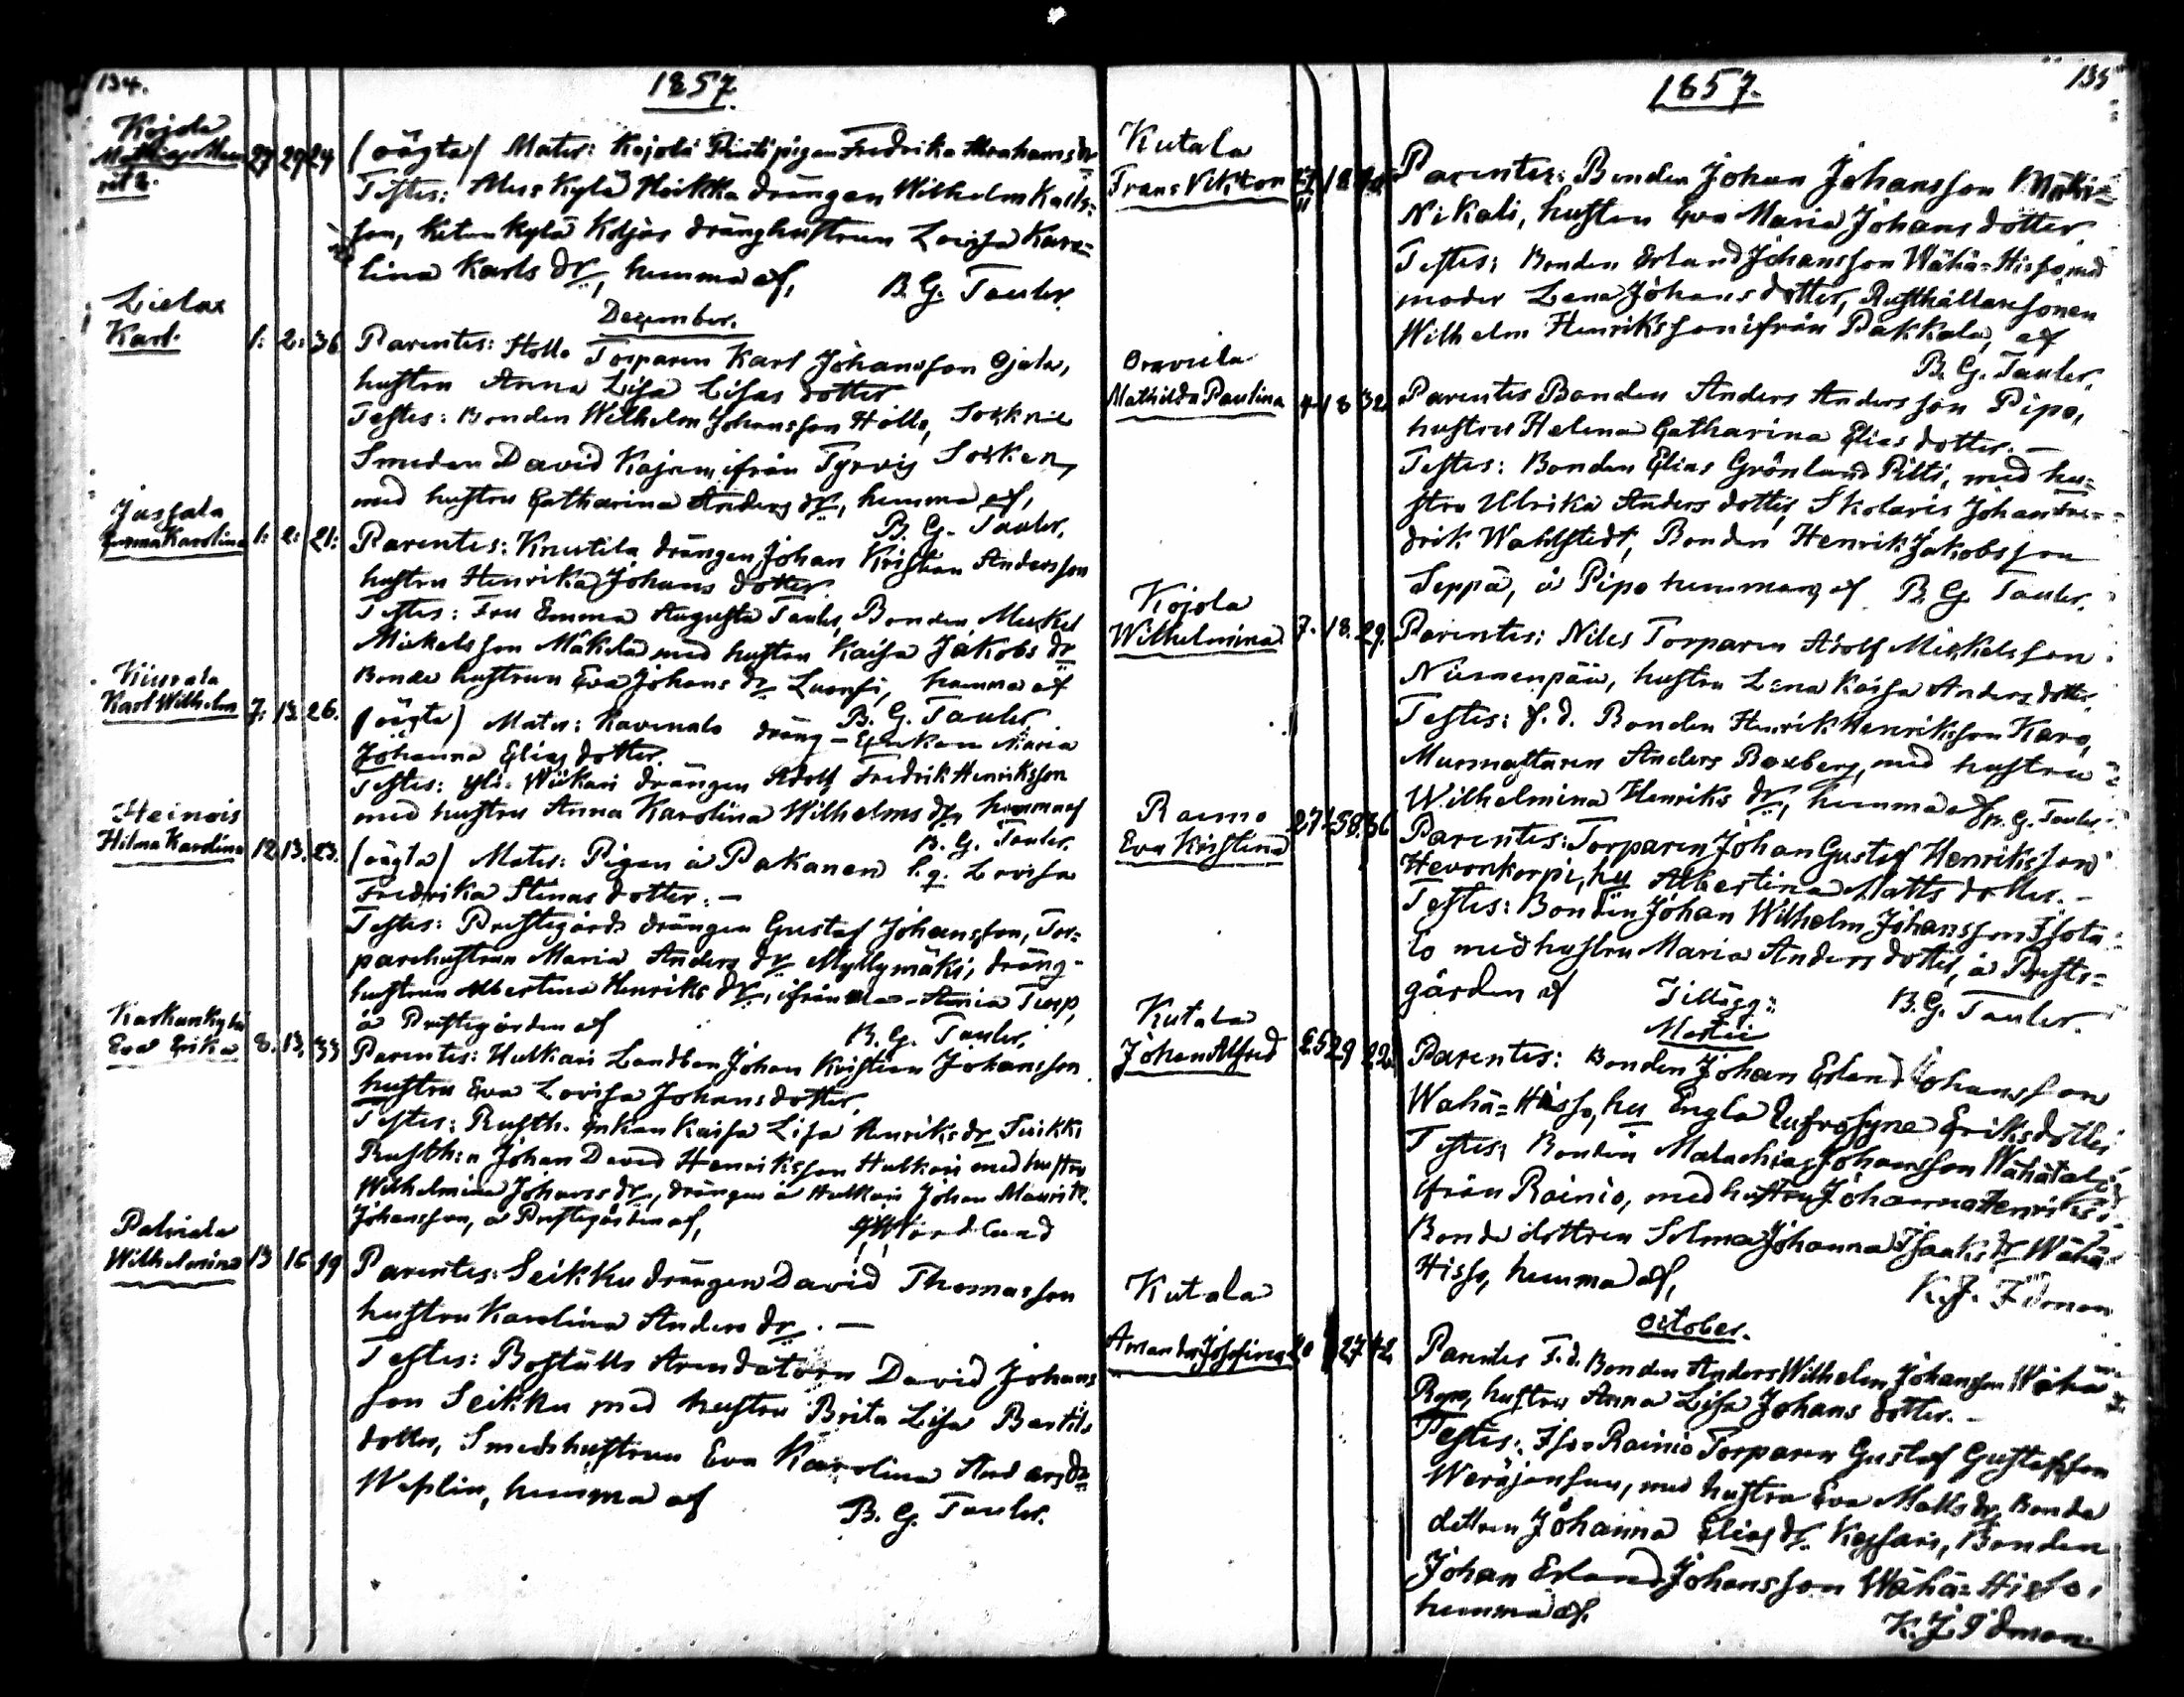 134.
1857.
Kojola
27 29 24 (oägta) Mater: Kojola Pigan Fredrika Abrahams dr
Testes: Alus Kylä Heikka drängen Wilhelm Karls-
son, Kitunkylä Koljos dränghustrun Lovisa Karo-
lina Karls dr, hemma af,
B. G. Tauler.
December.
Lielax
Karl. 1: 2: 36 Parentes: Hollo Torparen Karl Johansson Ojala,
hustru Anna Lisa Lisas dotter
Testes: Bonden Wilhelm Johansson Hollo, Sockne
Smeden David Kajan, ifrån Tyrvis Socken,
med hustru Catharina Anders dr, hemma af,
B. G. Tauler.
Jussala
Emma Karolina 1: 2: 21: Parentes: Knutila drängen Johan Kristian Andersson
hustru Henrika Johans dotter.
Testes: Fru Emma Augusta Tauler, Bonden Mickel
Mickelsson Mäkelä med hustru Kaisa Jakobs dr
Bonde hustrun Eva Johans dr Luonsi, hemma af
B. G. Tauler
Kiurala
Karl Wilhelm 7: 13. 26. (oägta) Mater: Ravenalo dräng-Enkan Maria
Johanna Elias dotter.
Testes: Yli-Wiikari drängen Adolf Fredrik Henriksson
med hustru Anna Karolina Wilhelms dr, hemma af
B. G. Tauler.
Heinois
Hilma Karolina 12 13. 23. (oägta) Mater: Pigan å Pakanen h.q. Lovisa
Fredrika Stinas dotter. –
Testes: Prestegårds drängen Gustaf Johansson, Tor-
parehustrun Maria Anders dr Myllymäki, dräng-
hustrun Albertina Henriks dr, ifrån Ala-Ania Torp,
å Prestegården af
B. G. Tauler.
Karhunkylä
Eva Erika 8. 13. 33 Parentes: Hulkari Landbon Johan Kristian Johansson
hustru Eva Lovisa Johansdotter.
Testes: Rusth. Enkan Kaisa Lisa Henriks dr Tuikki
Rusth:n Johan David Henriksson Hulkari med hustru
Wilhelmina Johans dr, drängen å Hulkari Johan Maurits
Johansson, å Prestegården af,
Palviala
Wilhelmina 13 16 19 Parentes: Seikku drängen David Thomasson
hustru Karolina Anders dr. –
Testes: Boställs Arendatorn David Johans
son Seikku med hustru Brita Lisa Bertils
dotter, Smedshustrun Eva Karolina Anders dr
Weplin, hemma af
B. G. Tauler.
135
1857.
Kutala
Frans Viktor 27 18 Parentes: Bonden Johan Johansson Mäki-
Nikali, hustru Eva Maria Johans dotter.
Testes: Bonden Erland Johansson Wähä-Hisso med
moder Lena Johans dotter, Rusthållaresonen
Wilhelm Henriksson ifrån Pakkala, af
B. G. Tauler.
Oravula
Mathilda Paulina 4 18 32 Parentes Bonden Anders Andersson Pipo,
hustru Helena Catharina Elias dotter. –
Testes: Bonden Elias Grönlund Piltti, med hu-
stru Ulrika Anders dotter, Skolaris Johan Fre-
drik Wahlstedt, Bonden Henrik Jakobsson
Seppä, å Pipo hemman, af B. G. Tauler.
Kojola
Wilhelmina 7. 18. 29. Parentes: Niles Torparen Adolf Mickelsson
Niemenpää, hustru Lena Kaisa Anders dotter.
Testes: f. d. Bonden Henrik Henriksson Karo,
Murmästaren Anders Boxberg, med hustru
Wilhelmina Henriks dr, hemma af B. G. Tauler.
Raimo
Eva Kristina 27 58. 36 Parentes: Torparen Johan Gustaf Henriksson
Hevonkorpi, hu Albertina Matts dotter. –
Testes: Bonden Johan Wilhelm Johansson Isota-
lo med hustru Maria Anders dotter, å Prests-
gården af
B. G. Tauler.
Tillägg:
Martii
Kutala
Johan Alfred 25 29 22 Parentes: Bonden Johan Erland Johansson
Wähä-Hisso, hu Engla Eufrosyne Eriksdotter
Testes: Bonden Malachias Johansson Wähätalo
ifrån Rainio, med hustru Johanna Henriks dr
Bonde dottren Selma Johanna Isaks dr Wähä-
Hisso, hemma af,
K. J. Idman
October.
Kutala
Amanda Josefina 20 27 42. Parentes F. d. Bonden Anders Wilhelm Johansson Wähä
Repo, hustru Anna Lisa Johans dotter. –
Testes: Iso-Rainio Torparen Gustaf Gustafsson
Weräjänsuu, med hustru Eva Matts dr, Bonde
dottren Johanna Elias dr Kessari, Bonden
Johan Erland Johansson Wähä-Hisso,
hemma af.
K. J. Idman.